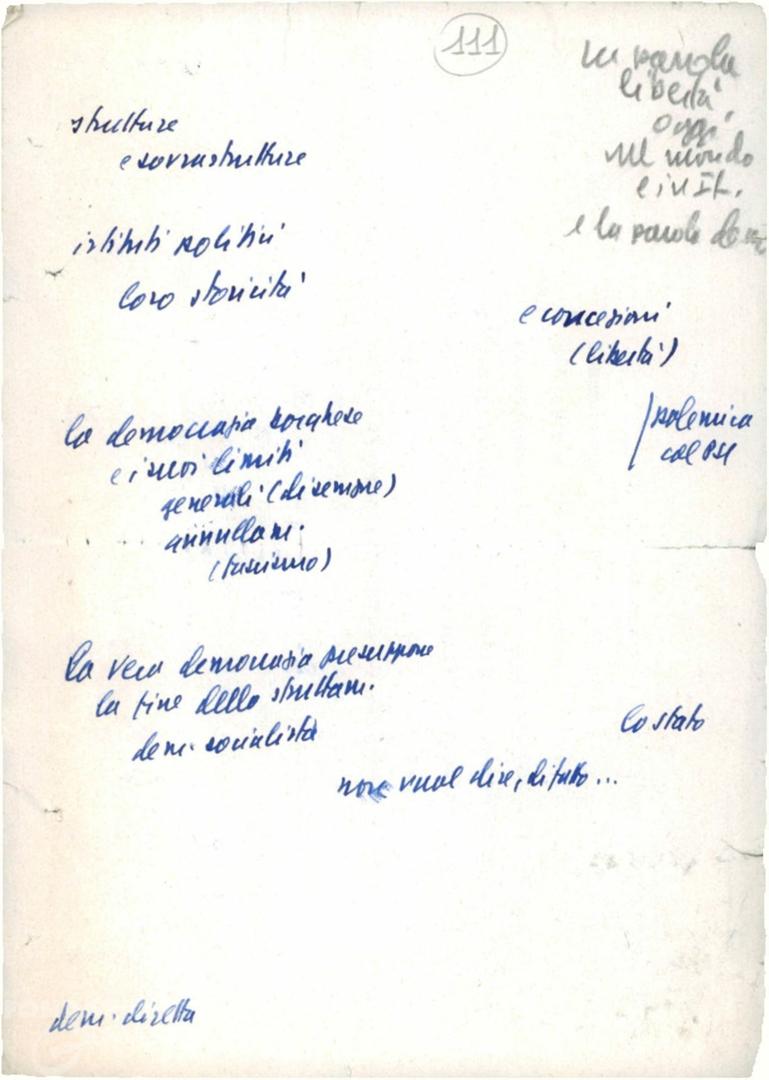 111
la parola
libertà
oggi
nel mondo
e in It.
e la parola dem
strutture
e sovrastrutture
istituti politici
loro storicità
e concezioni
(libertà)
la democrazia borghese
e i suoi limiti
generali (di sempre)
annullam.
(fascismo)
polemica
col PSI
La vera democrazia presuppone
la fine dello sfruttam.
dem. socialista
lo stato
non vuol dire, di fatto...
dem. diretta